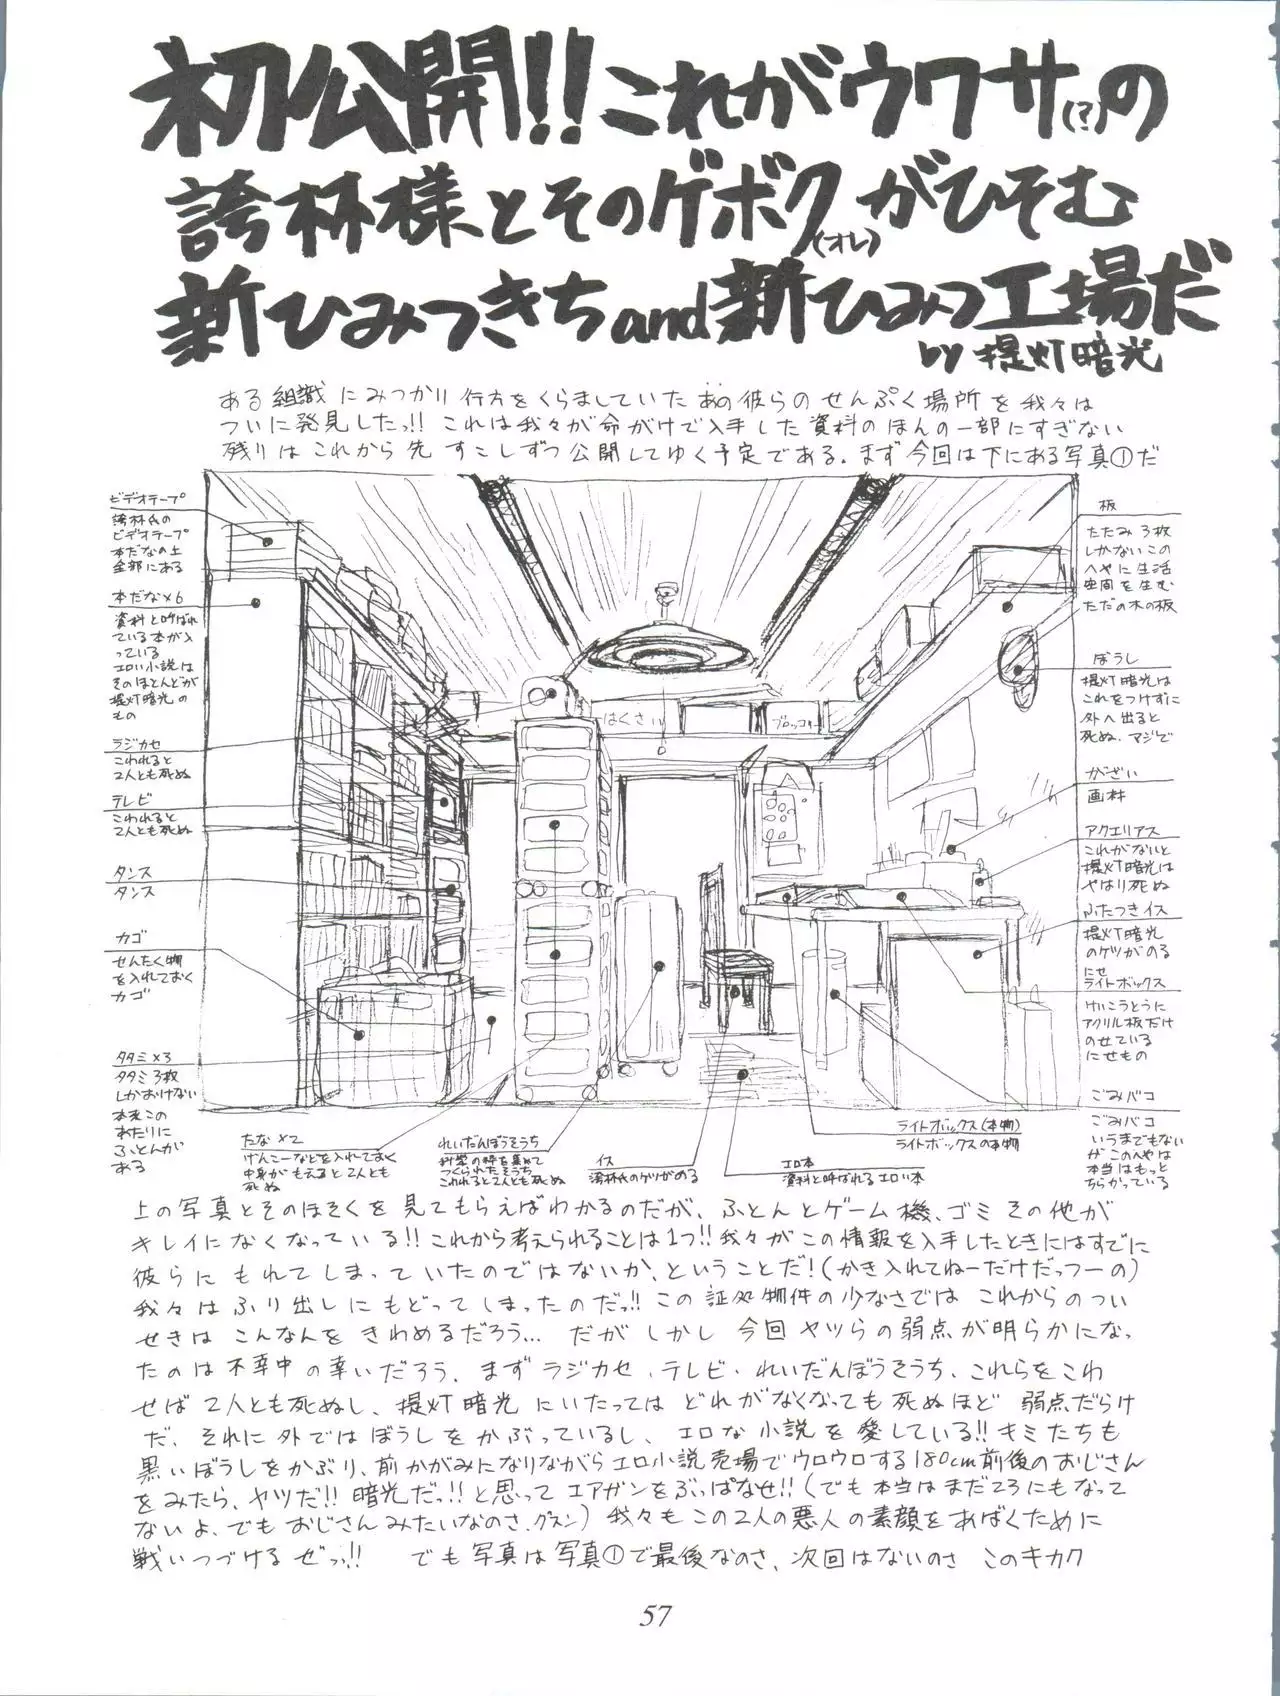 初公開!!これがウワサ(?)の
誇林様とそのゲボク(オレ)がひそむ
新ひみつきちand新ひみつ工場だ
by 提灯暗光
ある組織にみつかり行方をくらましていたあの彼らのせんぷく場所を我々は
ついに発見したっ!!これは我々が命がけで入手した資料のほんの一部にすぎない
残りはこれから先すこしずつ公開してゆく予定である。まず今回は下にある写真①だ
ビデオテープ
誇林氏の
ビデオテープ
本だなの上
全部にある
本だな×6
資料と呼ばれ
ている本が入
っている
エロい小説は
そのほとんどが
提灯暗光の
もの
ラジカセ
こわれると
2人とも死ぬ
テレビ
こわれると
2人とも死ぬ
タンス
タンス
カゴ
せんたく物
を入れておく
カゴ
タタミ×3
タタミ3枚
しかおけない
本来この
あたりに
ふとんが
ある
はくさい
ブロッコリー
板
たたみ3枚
しかないこの
へやに生活
空間を生む
ただの木の板
ぼうし
提灯暗光は
これをつけずに
外へ出ると
死ぬ、マジで
がざい
画材
アクエリアス
これがないと
提灯暗光は
やはり死ぬ
ふたつきイス
提灯暗光
のケツがのる
にせ
ライトボックス
けいこうとうに
アクリル板だけ
のせている
にせもの
ごみバコ
ごみバコ
いうまでもない
がこのへやは
本当はもっと
ちらかっている
たな×2
げんこーなどを入れておく
中身がもえると2人とも
死ぬ
れいだんぼうそうち
科学の粋を集めて
つくられたそうち
これれると2人とも死ぬ
イス
誇林氏のケツがのる
エロ本
資料と呼ばれるエロい本
ライトボックス(本物)
ライトボックスの本物
上の写真とそのほそくを見てもらえばわかるのだが、ふとんとゲーム機、ゴミその他が
キレイになくなっている!!これから考えられることは1つ!!我々がこの情報を入手したときにはすでに
彼らにもれてしまっていたのではないか、ということだ!(かき入れてねーだけだっつーの)
我々はふり出しにもどってしまったのだっ!!この証拠物件の少なさではこれからのつい
せきはこんなんをきわめるだろう…だがしかし今回ヤツらの弱点が明らかになっ
たのは不幸中の幸いだろう、まずラジカセ、テレビ、れいだんぼうそうち、これらをこわ
せば2人とも死ぬし、提灯暗光にいたってはどれがなくなっても死ぬほど弱点だらけ
だ、それに外ではぼうしをかぶっているし、エロな小説を愛している!!キミたちも
黒いぼうしをかぶり、前かがみになりながらエロ小説売場でウロウロする180cm前後のおじさん
をみたら、ヤツだ!!暗光だっ!!と思ってエアガンをぶっぱなせ!!(でも本当はまだ23にもなって
ないよ、でもおじさんみたいなのさ、グスン)我々もこの2人の悪人の素顔をあばくために
戦いつづけるぜっっ!!でも写真は写真①で最後なのさ、次回はないのさこのキカク
57